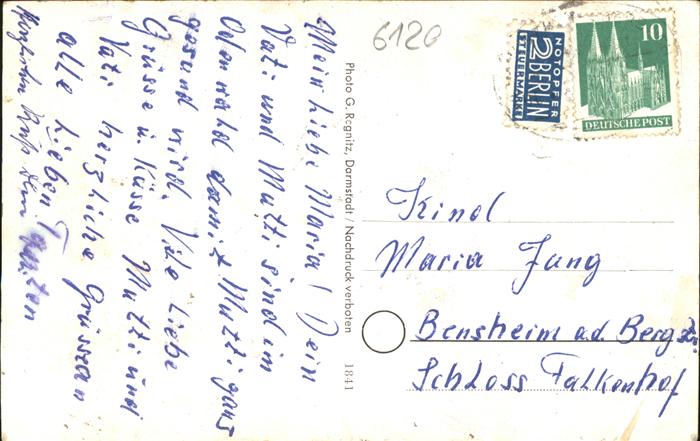 Meine liebe Maria! Dein
Vati und Mutti sind im
Odenwald damit Mutti ganz
gesund wird. Viele liebe
Grüsse u. Küsse Mutti und
Vati herzliche Grüsse an
alle lieben Tanten
6120
NOTOPFER
2 BERLIN
STEUERMARKE
10
DEUTSCHE POST
Photo G. Regnitz, Darmstadt / Nachdruck verboten 1841
Kind
Maria Jung
Bensheim a.d. Bergstr.
Schloss Falkenhof